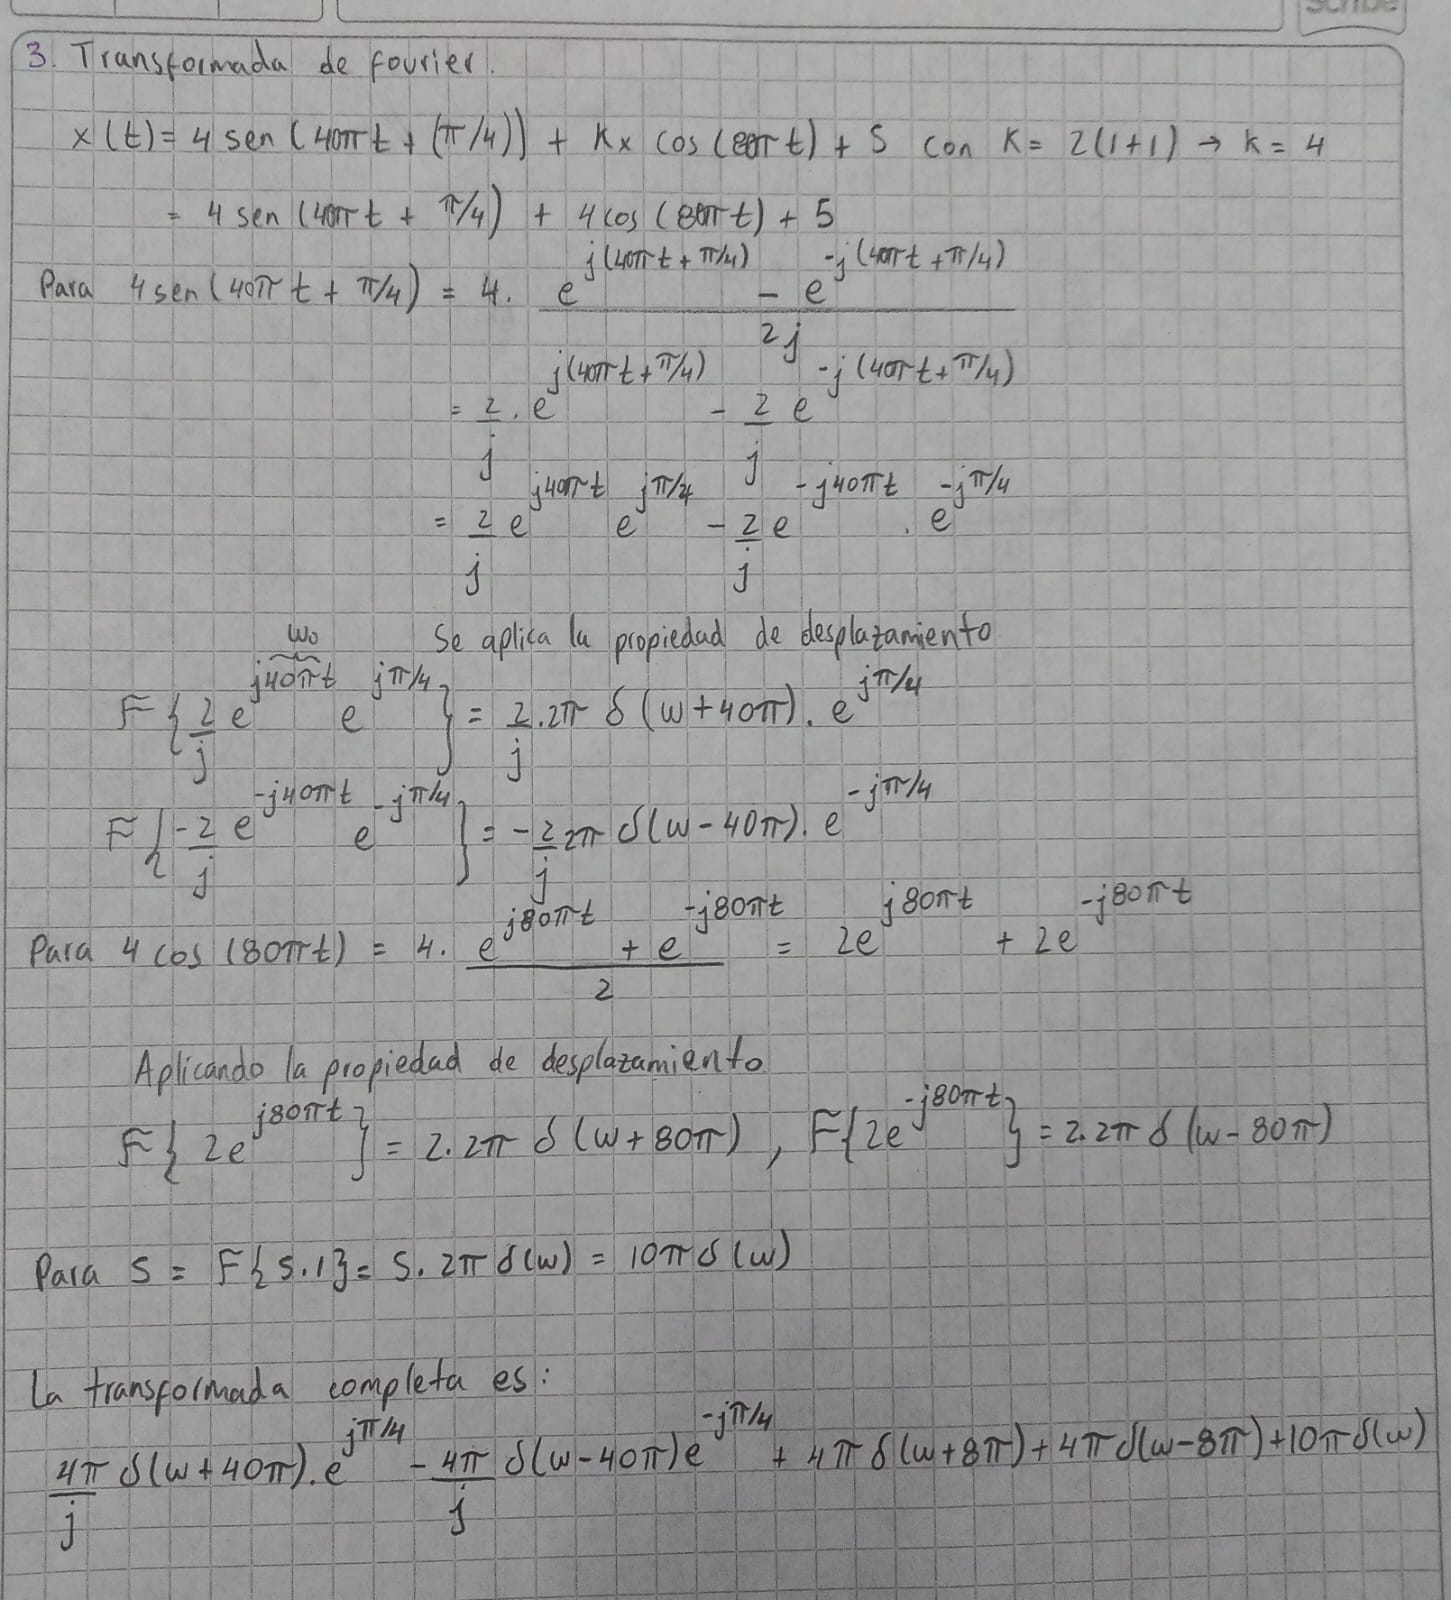 Scribe
3. Transformada de fourier.
x(t) = 4 sen (40πt + (π/4)) + Kx cos(80πt) + 5 con K = 2(1+1) → K = 4
= 4 sen (40πt + π/4) + 4cos(80πt) + 5
Para 4 sen(40πt + π/4) = 4 · (e^{j(40πt + π/4)} - e^{-j(40πt + π/4)}) / 2j
= 2/j · e^{j(40πt + π/4)} - 2/j e^{-j(40πt + π/4)}
= 2/j e^{j40πt} e^{jπ/4} - 2/j e^{-j40πt} · e^{-jπ/4}
Se aplica la propiedad de desplazamiento
wo
F{2/j e^{j40πt} e^{jπ/4}} = 2/j · 2π δ(w + 40π) · e^{jπ/4}
F{-2/j e^{-j40πt} e^{-jπ/4}} = -2/j 2π δ(w - 40π) · e^{-jπ/4}
Para 4 cos (80πt) = 4 · (e^{j80πt} + e^{-j80πt}) / 2 = 2e^{j80πt} + 2e^{-j80πt}
Aplicando la propiedad de desplazamiento
F{2e^{j80πt}} = 2 · 2π δ(w + 80π), F{2e^{-j80πt}} = 2 · 2π δ(w - 80π)
Para 5 = F{5·1} = 5 · 2π δ(w) = 10π δ(w)
La transformada completa es:
4π/j δ(w + 40π) · e^{jπ/4} - 4π/j δ(w - 40π) e^{-jπ/4} + 4π δ(w + 8π) + 4π δ(w - 8π) + 10π δ(w)